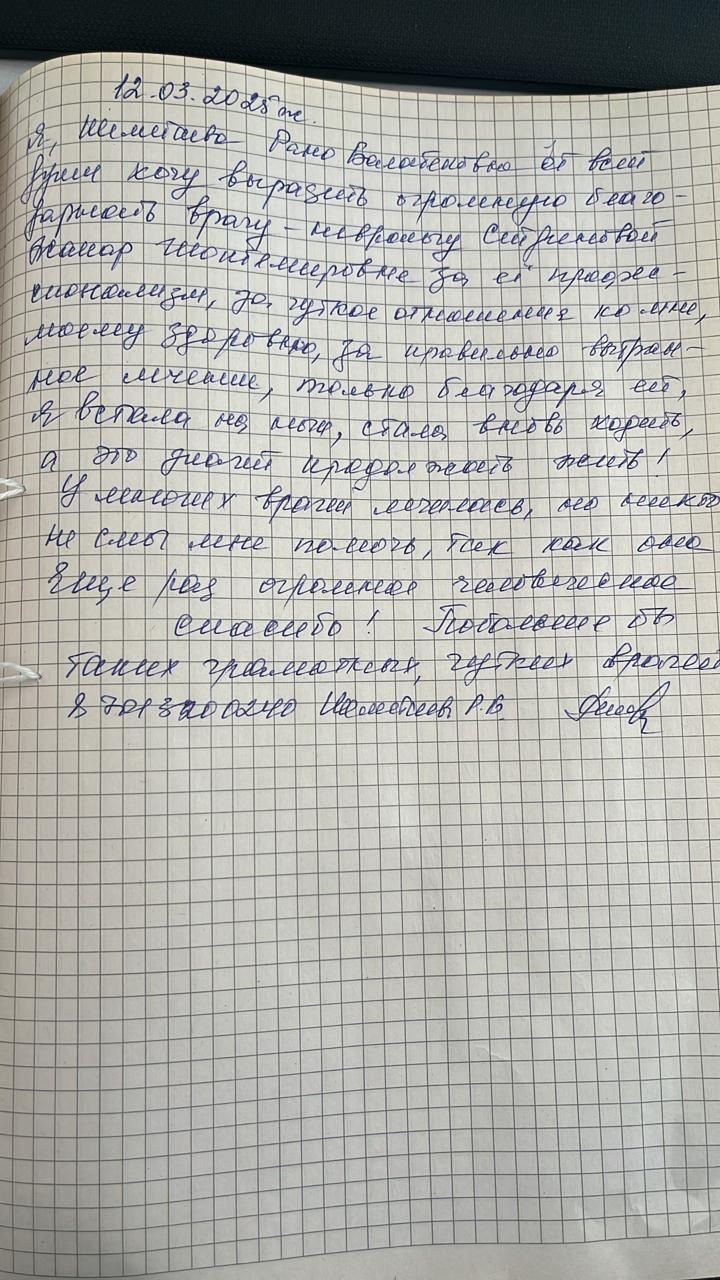 12.03.2025 ж.
Я, Рано от всей
души хочу выразить огромную благо-
дарность врачу-неврологу
Жанар за её профес-
сионализм, за чуткое отношения ко мне,
моему здоровью, за правильно выбран-
ное лечение, только благодаря ей,
я встала на ноги, стала вновь ходить,
а это значит продолжать жить!
У многих врачей лечилась, но никто
не смог мне помочь, так как она
Еще раз огромное человеческое
спасибо! Побольше бы
таких грамотных, чутких врачей
8 701 3200240 Р.В